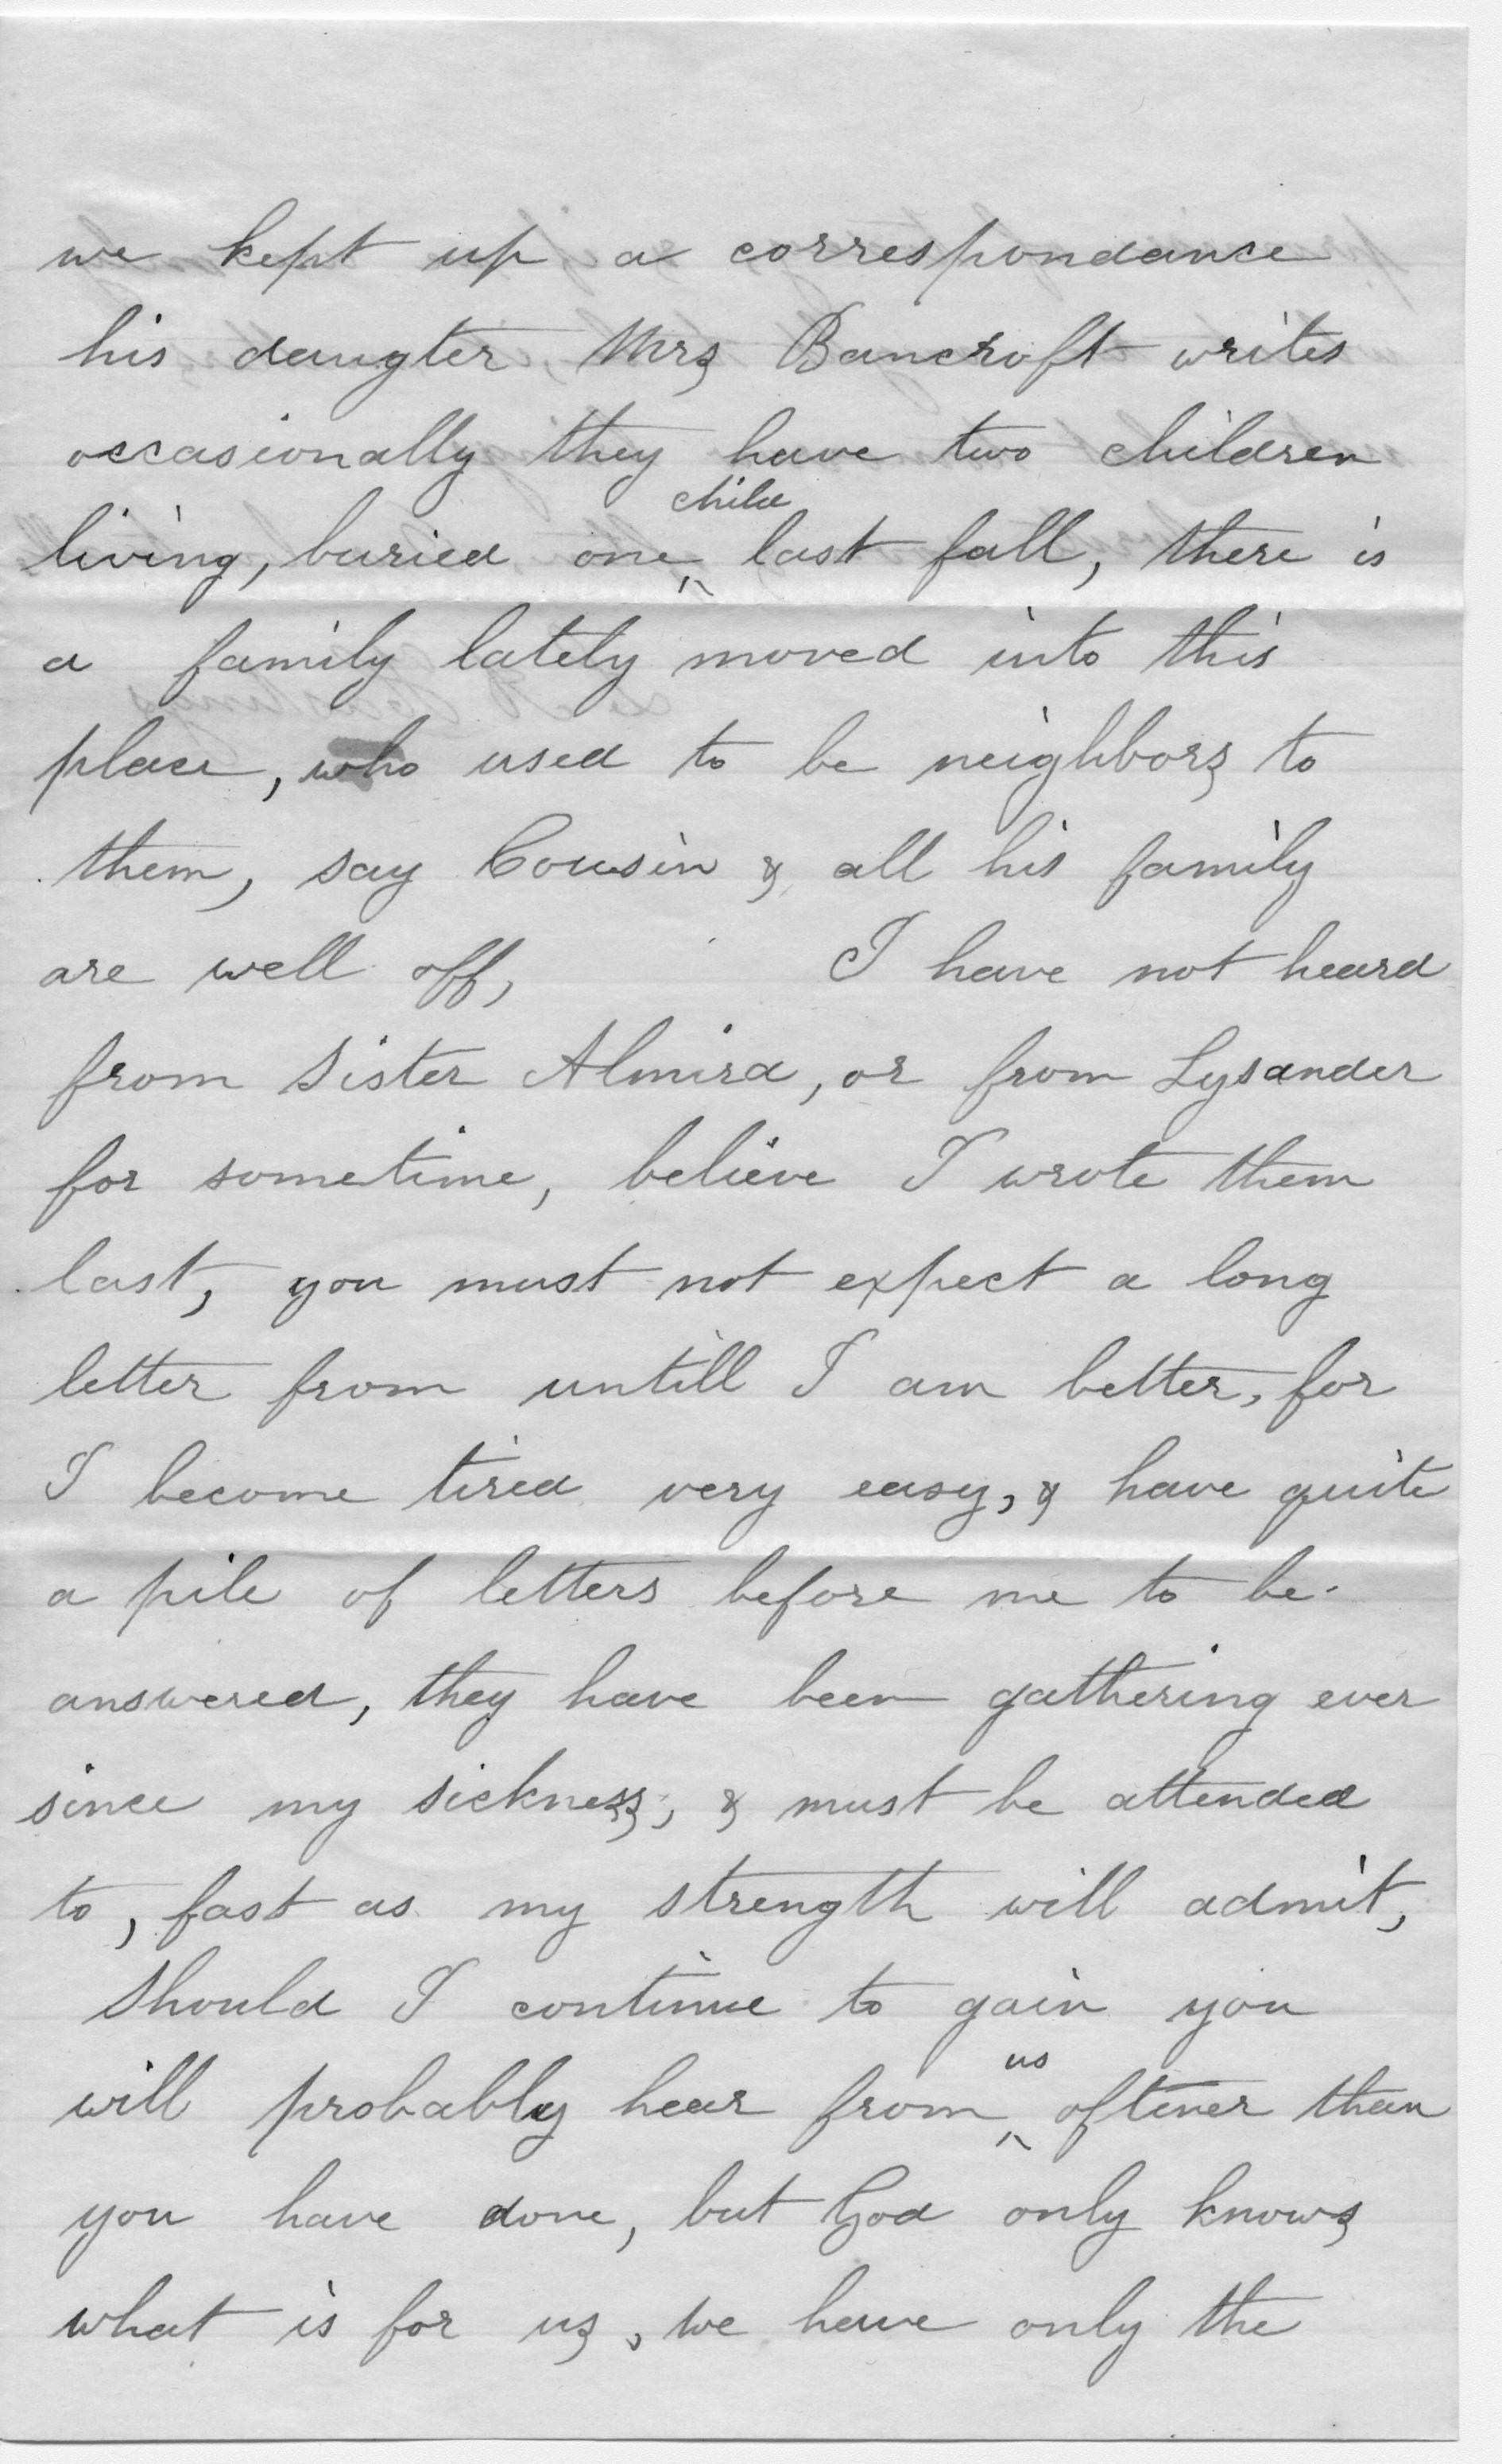 we kept up a correspondance
his daugter Mrs Bancroft writes
occasionally they have two children
child
living, buried one ^ last fall, there is
a family lately moved into this
place, who used to be neighbors to
them, say Cousin & all his family
are well off, I have not heard
from Sister Almira, or from Lysander
for sometime, believe I wrote them
last, you must not expect a long
letter from untill I am better, for
I become tired very easy, & have quite
a pile of letters before me to be
answered, they have been gathering ever
since my sickness, & must be attended
to, fast as my strength will admit,
Should I continue to gain you
us
will probably hear from ^ oftener than
you have done, but God only knows
what is for us, we have only the